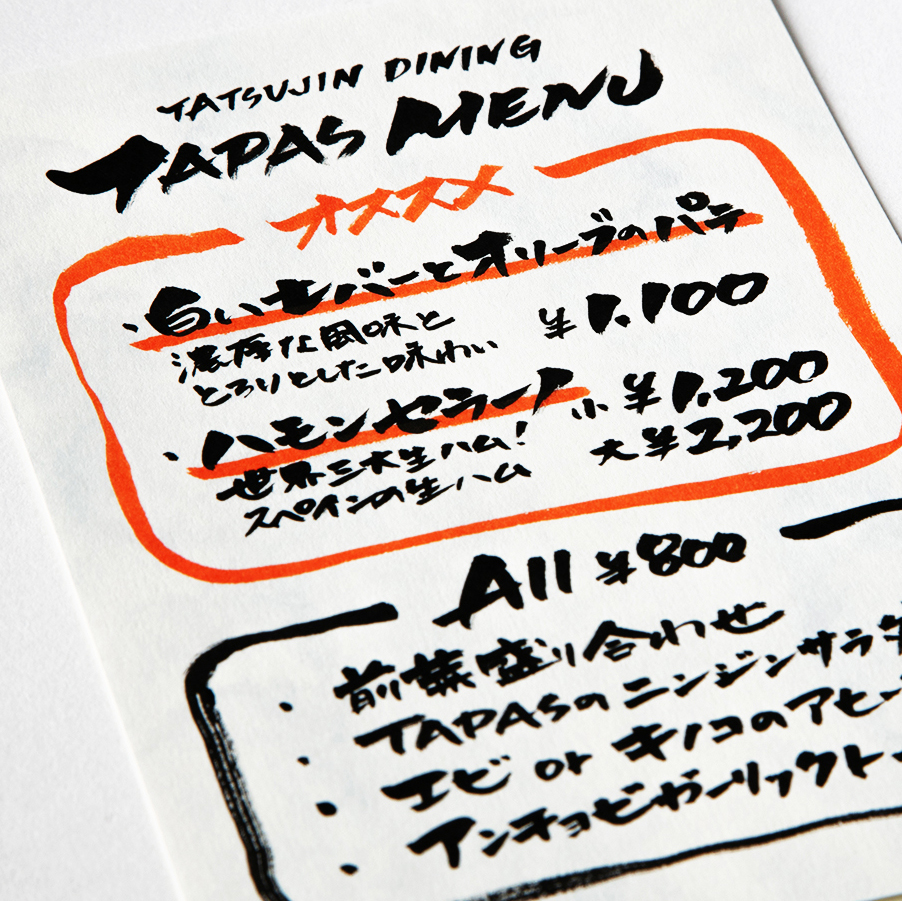 TATSUJIN DINING
TAPAS MENU
オススメ
・白いレバーとオリーブのパテ
濃厚な風味と
とろりとした味わい
¥1,100
・ハモンセラーノ
世界三大生ハム!
スペインの生ハム
小 ¥1,200
大 ¥2,200
All ¥800
・前菜盛り合わせ
・TAPASのニンジンサラダ
・エビ or キノコのアヒー
・アンチョビガーリックトー